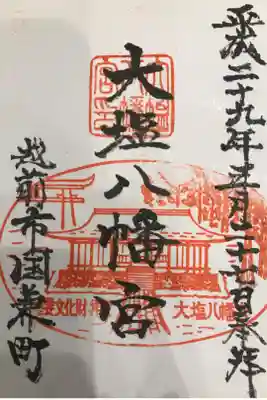 平成二十九年五月二十六日奉拝
大塩八幡宮
越前市国兼町
重要文化財
大塩八幡